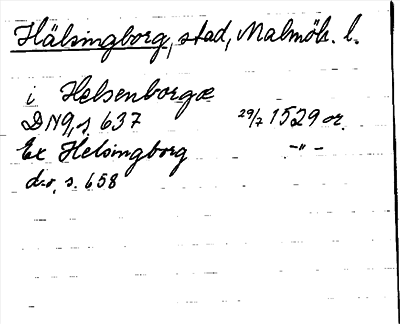 Hälsingborg, stad, Malmöh. l.
i Helsenborgæ
DN9, s. 637 29/7 1529 or.
Ex Helsingborg -"-
d:o, s. 658